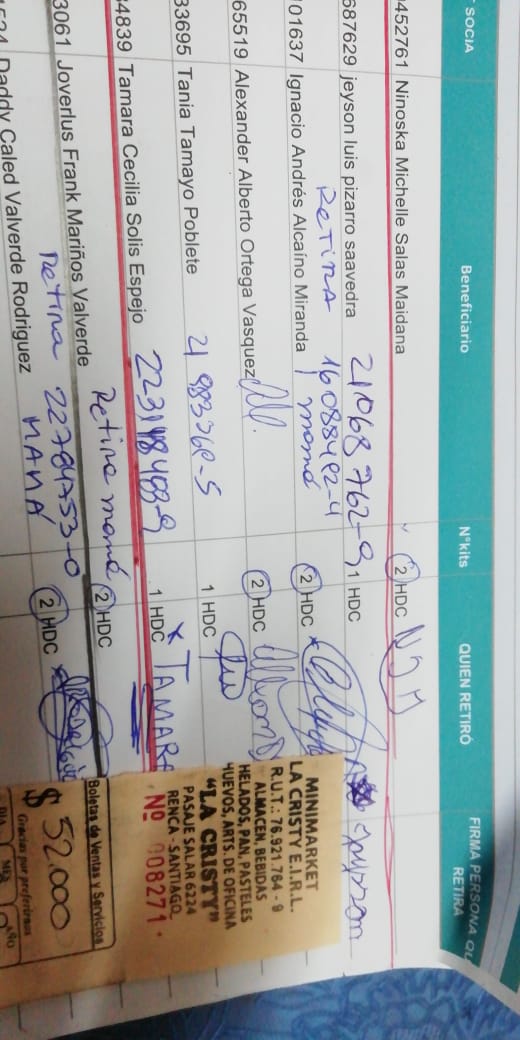 SOCIA Beneficiario N°kits QUIEN RETIRÓ FIRMA PERSONA QU
RETIRA
452761 Ninoska Michelle Salas Maidana (2) HDC NSM
687629 jeyson luis pizarro saavedra 21068762-9 1 HDC
101637 Ignacio Andrés Alcaíno Miranda (2) HDC
Retira 16088482-4 mamá
65519 Alexander Alberto Ortega Vasquez (2) HDC
33695 Tania Tamayo Poblete 1 HDC
44839 Tamara Cecilia Solis Espejo 1 HDC x TAMARA
3061 Joverlus Frank Mariños Valverde Retira mamá (2) HDC
Retira 22784753-0 MAMÁ (2) HDC
Daddy Caled Valverde Rodriguez
MINIMARKET
LA CRISTY E.I.R.L.
R.U.T.: 76.921.764 - 9
ALMACEN, BEBIDAS
HELADOS, PAN, PASTELES
HUEVOS, ARTS. DE OFICINA
"LA CRISTY"
PASAJE SALAR 6224
RENCA - SANTIAGO
Nº 008271
Boletas de Ventas y Servicios
$ 52.000
Gracias por preferirnos
DIA MES AÑO